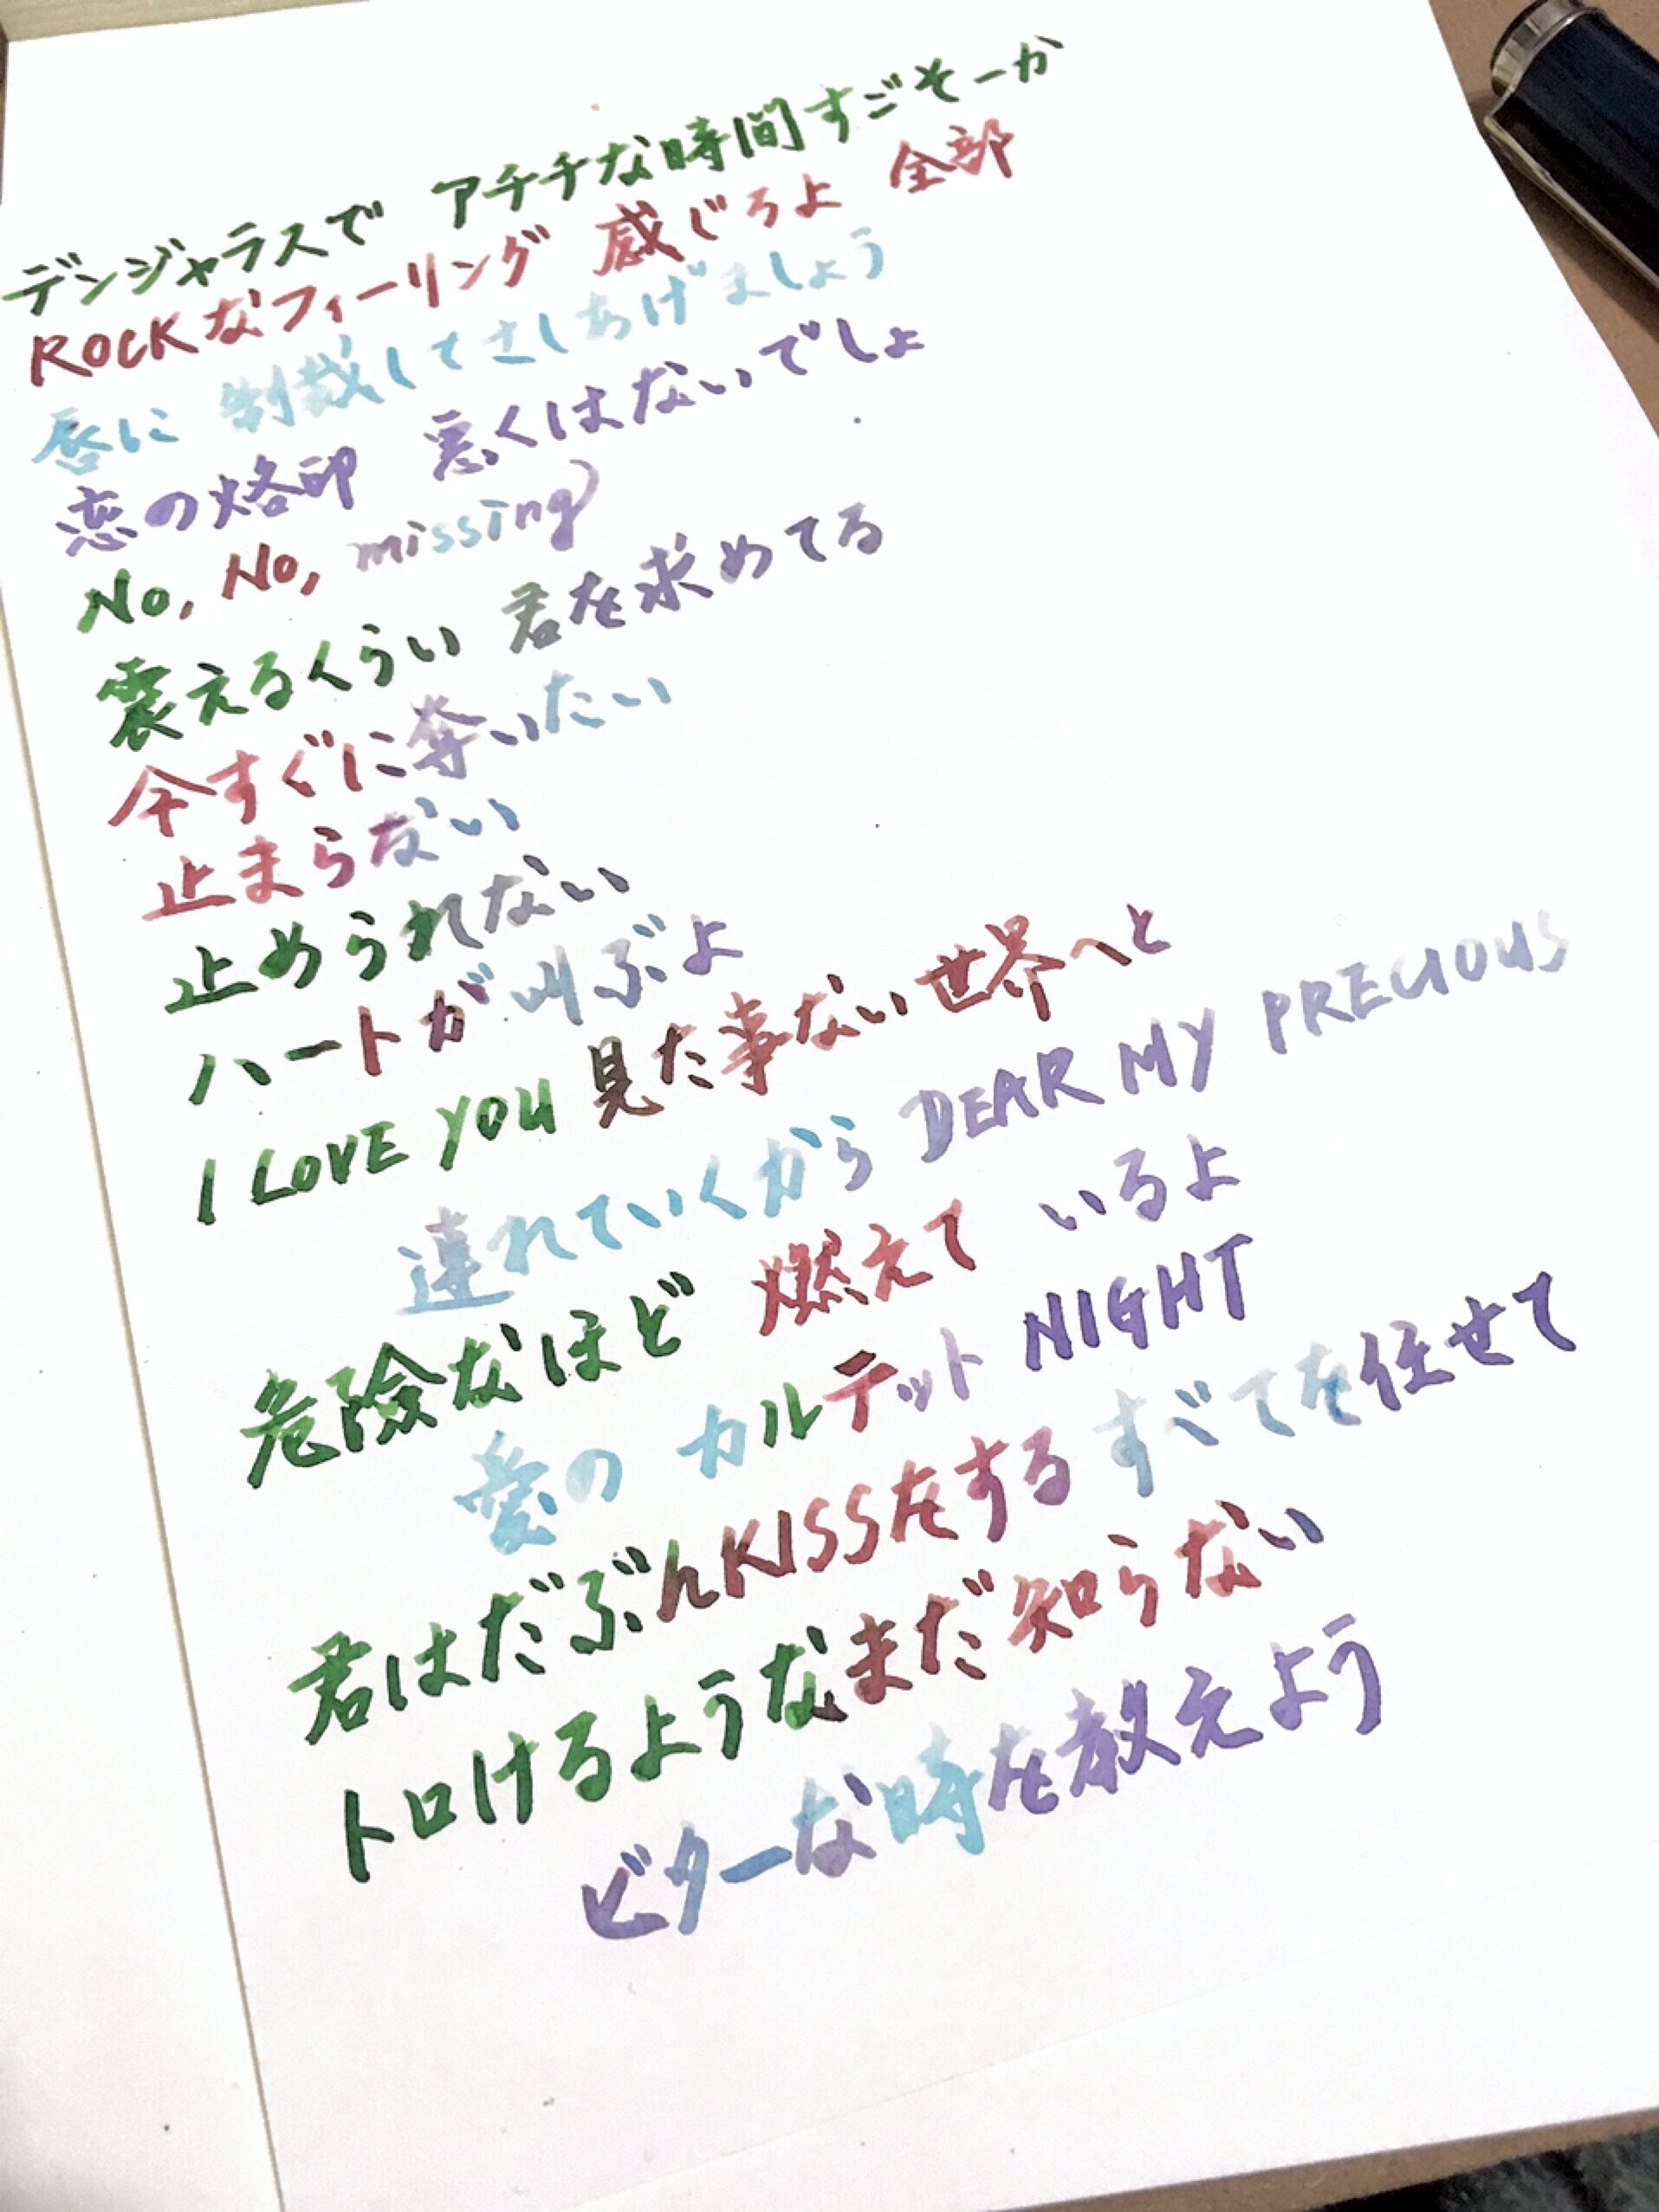 デンジャラスで アチチな時間すごそーか
ROCKなフィーリング 感じろよ 全部
唇に 制裁してさしあげましょう
恋の烙印 悪くはないでしょ
No, No, missing
震えるくらい 君を求めてる
今すぐに奪いたい
止まらない
止められない
ハートが叫ぶよ
I LOVE YOU 見た事ない世界へと
連れていくから DEAR MY PRECIOUS
危険なほど 燃えて いるよ
愛の カルテット NIGHT
君はだぶんKISSをする すべてを任せて
トロけるようなまだ知らない
ビターな時を教えよう